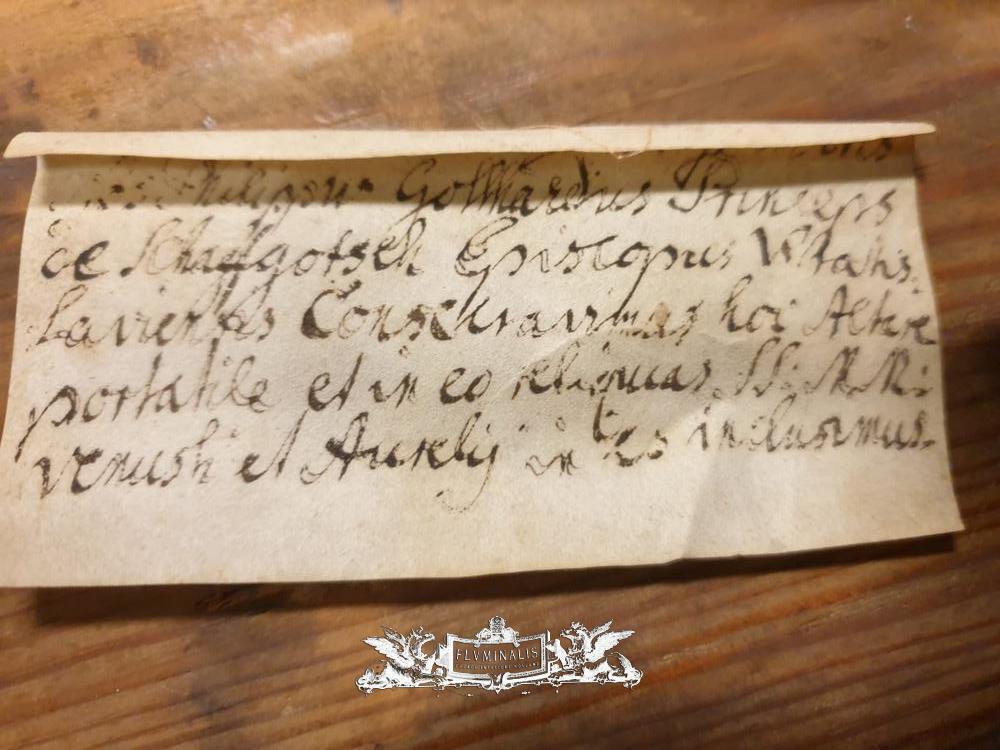 Philippus Gotthardus Princeps
de Schaffgotsch Episcopus Wratis,
laviensis Consecravimus hoc Altare
portatile et in eo reliquias SS: M.M:
Venusti et Aurelij in inclusimus.
FLVMINALIS